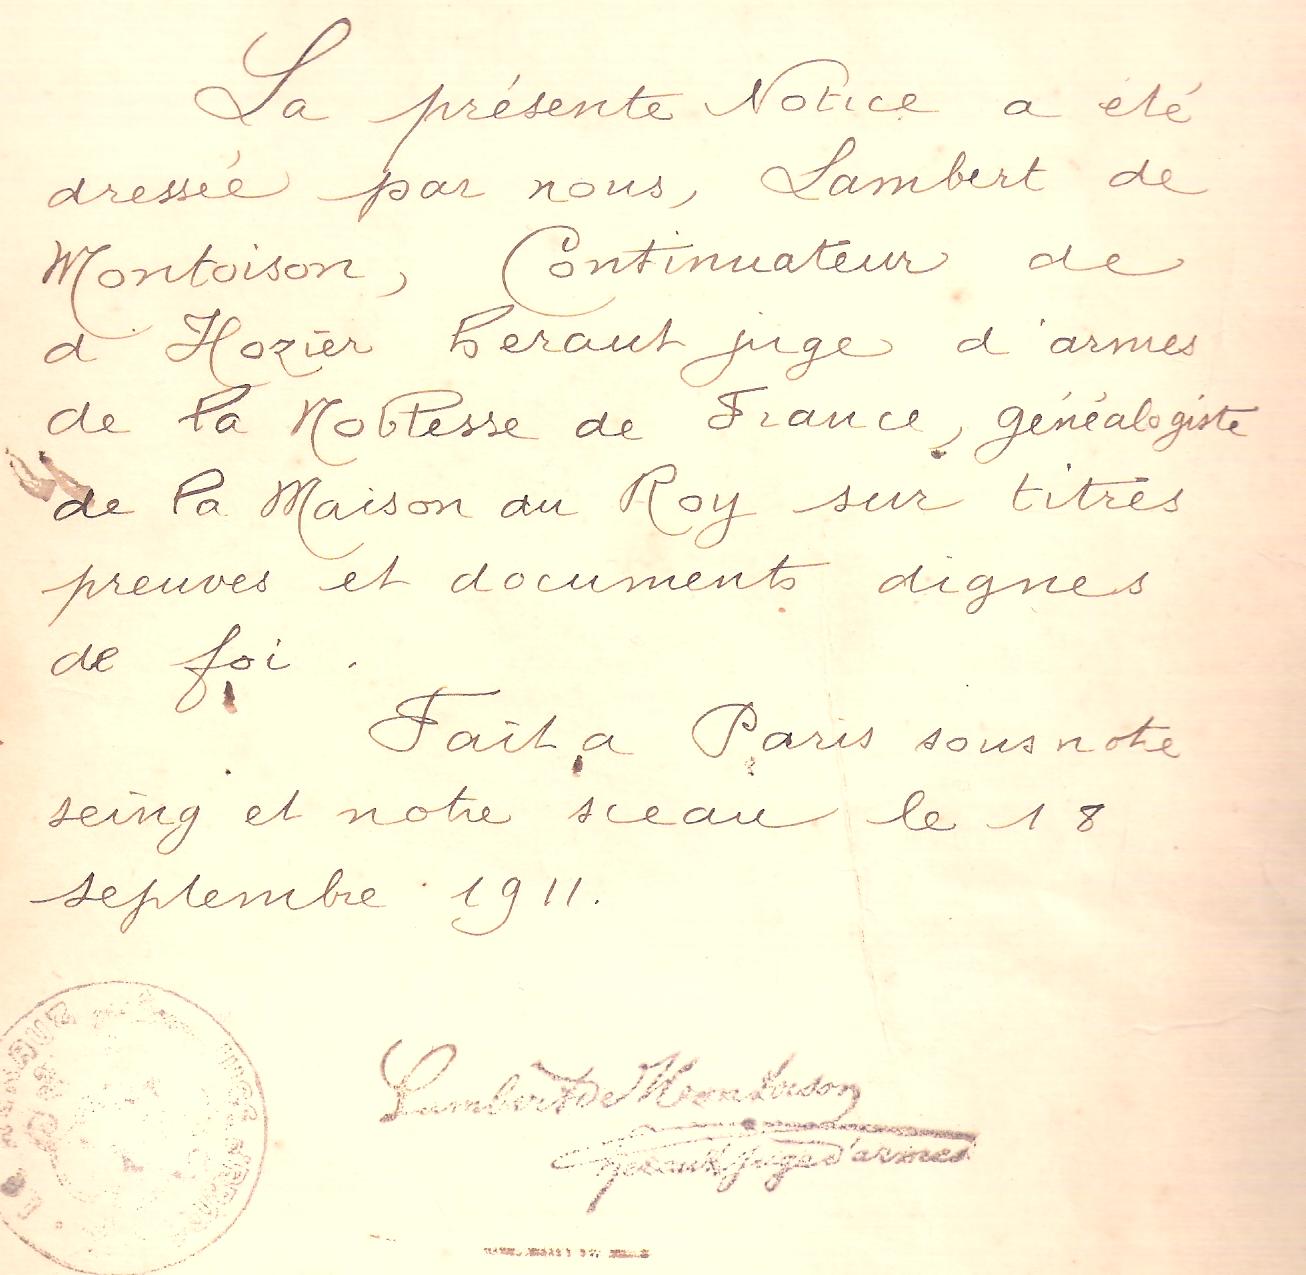 La présente Notice a été
dressée par nous, Lambert de
Montoison, Continuateur de
d Hozier heraut juge d'armes
de la Noblesse de France, généalogiste
de la Maison du Roy sur titres
preuves et documents dignes
de foi.
Fait a Paris sous notre
seing et notre sceau le 18
septembre 1911.
Lambert de Montoison
heraut juge d'armes